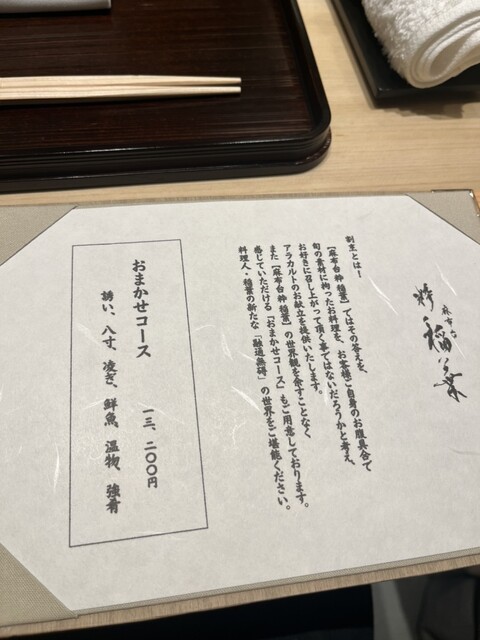 麻布台
粋 稲葉
割烹とは!
【麻布台 粋 稲葉】ではその答えを、
旬の素材に拘ったお料理を、お客様ご自身のお腹具合で
お好きに召し上がって頂く事ではないだろうかと考え、
アラカルトのお献立を提供いたします。
また【麻布台 粋 稲葉】の世界観を余すことなく
感じていただける「おまかせコース」もご用意しております。
料理人・稲葉の新たな「融通無碍」の世界をご堪能ください。
おまかせコース 一三、二〇〇円
誘い、八寸、凌ぎ、鮮魚、温物、強肴